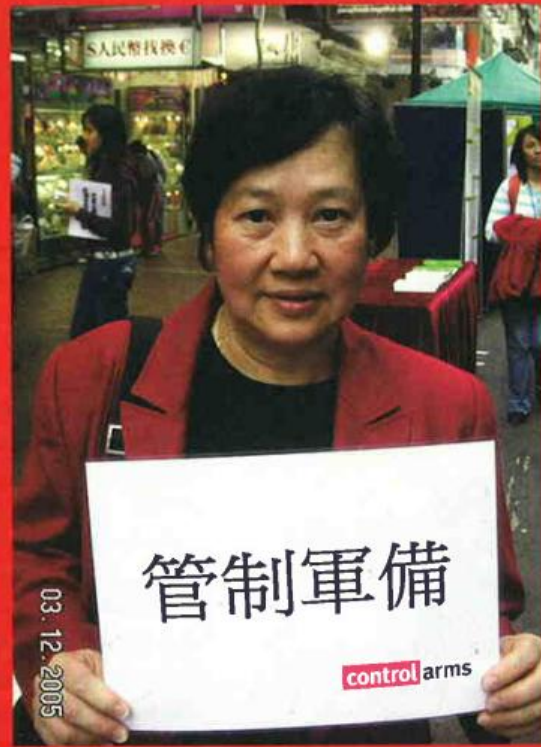 S人民幣找換€
管制軍備
control arms
03.12.2005